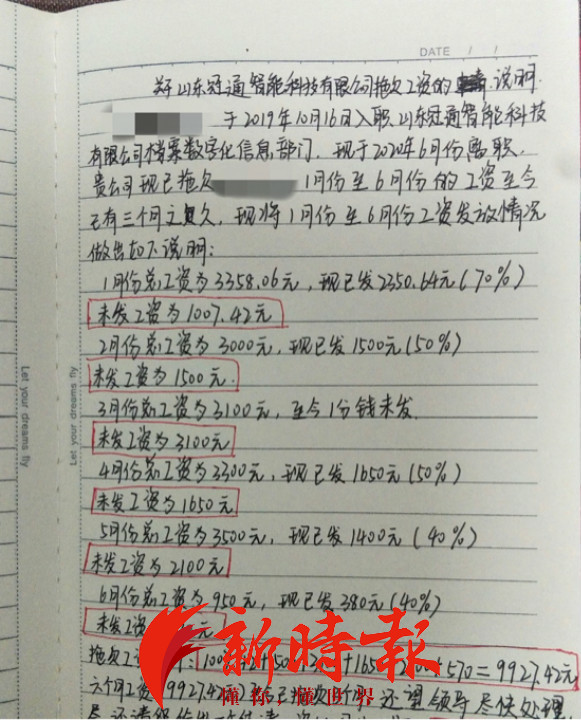 DATE / /
关于山东冠通智能科技有限公司拖欠工资的情说明.
于2019年10月16日入职山东冠通智能科技
有限公司档案数字化信息部门,现于2020年6月份离职,
贵公司现已拖欠 1月份至6月份的工资至今
已有三个月之久,现将1月份至6月份工资发放情况
做出如下说明:
1月份总工资为3358.06元,现已发2350.64元(70%)
未发工资为1007.42元
2月份总工资为3000元,现已发1500元(50%)
未发工资为1500元.
3月份总工资为3100元,至今1分钱未发.
未发工资为3100元
4月份总工资为3300元,现已发1650元(50%)
未发工资为1650元
5月份总工资为3500元,现已发1400元(40%)
未发工资为2100元
6月份总工资为950元,现已发380元(40%)
未发工 元
拖欠工 570=9927.42元
六个月工资 9927.42 已拖欠 个月 还望领导尽快处理
Let your dreams fly
Let your dreams fly
新時報
懂你,懂世界